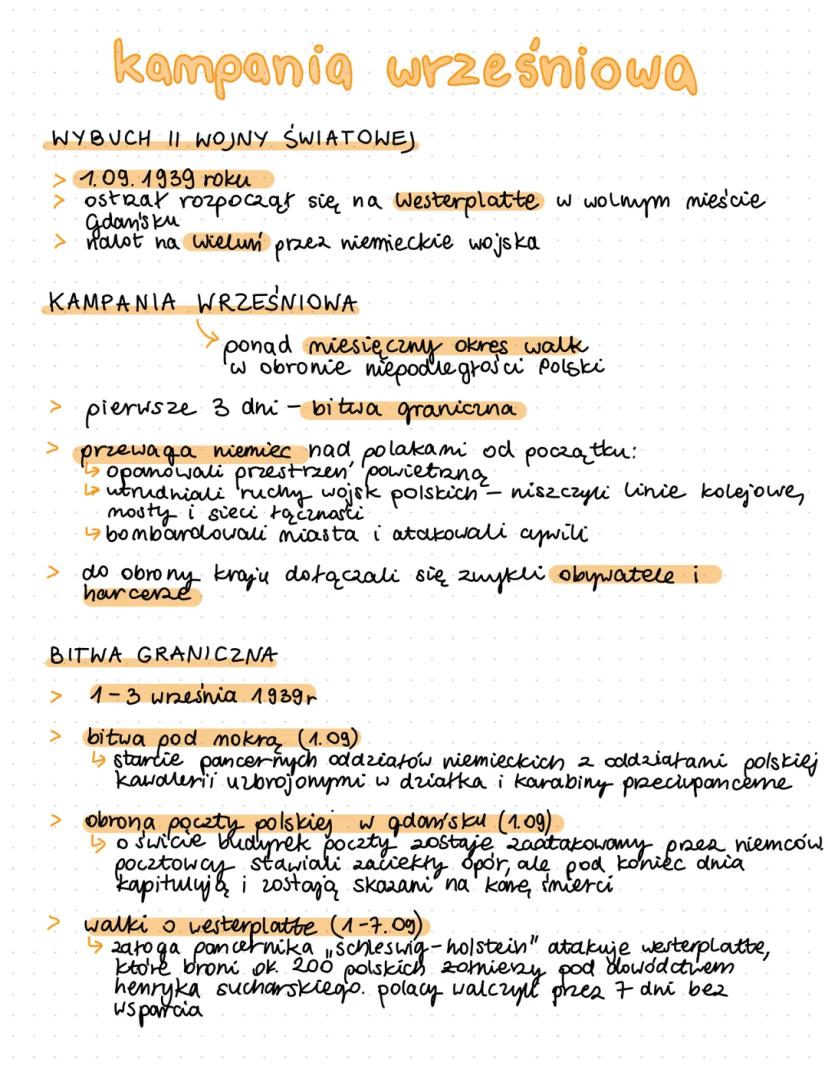 kampania wrześniowa
WYBUCH II WOJNY ŚWIATOWEJ
> 1.09.1939 roku
> ostrzał rozpoczął się na westerplatte w wolnym mieście
gdańsku
> nalot na wieluń przez niemieckie wojska
KAMPANIA WRZEŚNIOWA
ponad miesięczny okres walk
w obronie niepodległości Polski
> pierwsze 3 dni – bitwa graniczna
> przewaga niemiec nad polakami od początku:
↳ opanowali przestrzeń powietrzną
↳ utrudniali ruchy wojsk polskich – niszczyli linie kolejowe,
mosty i sieci łączności
↳ bombardowali miasta i atakowali cywili
> do obrony kraju dołączali się zwykli obywatele i
harcerze
BITWA GRANICZNA
> 1-3 września 1939r
> bitwa pod mokrą (1.09)
↳ starcie pancernych oddziałów niemieckich z oddziałami polskiej
kawalerii uzbrojonymi w działka i karabiny przeciwpancerne
> obrona poczty polskiej w gdańsku (1.09)
↳ o świcie budynek poczty zostaje zaatakowany przez niemców
pocztowcy stawiali zaciekły opór, ale pod koniec dnia
kapitulują i zostają skazani na karę śmierci
> walki o westerplatte (1-7.09)
↳ załoga pancernika „schleswig-holstein" atakuje westerplatte,
które broni ok. 200 polskich żołnierzy pod dowództwem
henryka sucharskiego. polacy walczyli przez 7 dni bez
wsparcia